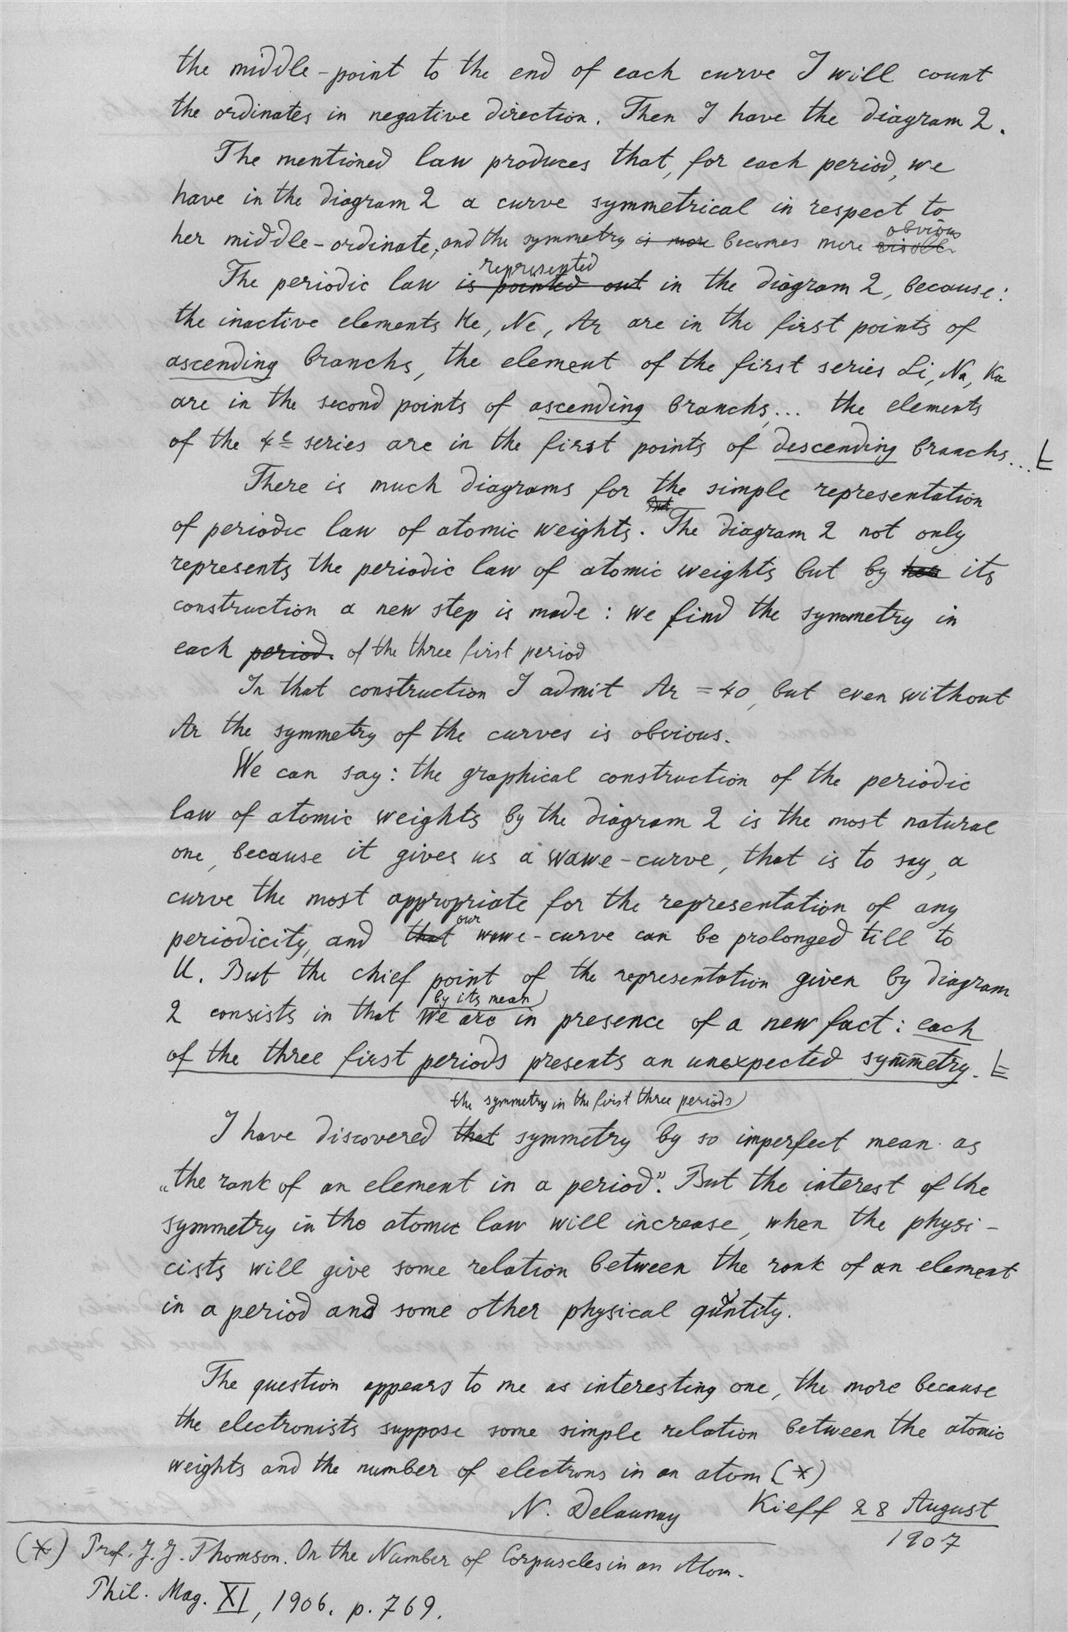 the middle-point to the end of each curve I will count
the ordinates in negative direction. Then I have the diagram 2.
The mentioned law produces that, for each period, we
have in the diagram 2 a curve symmetrical in respect to
her middle-ordinate, and the symmetry is more becomes more visible. obvious
The periodic law is pointed out represented in the diagram 2, because:
the inactive elements He, Ne, Ar are in the first points of
ascending branchs, the element of the first series Li, Na, Ka
are in the second points of ascending branchs,... the elements
of the 4t series are in the first points of descending branchs...
There is much diagrams for the simple representation
of periodic law of atomic weights. But The diagram 2 not only
represents the periodic law of atomic weights but by her its
construction a new step is made: we find the symmetry in
each period. of the three first period
In that construction I admit Ar = 40, but even without
Ar the symmetry of the curves is obvious.
We can say: the graphical construction of the periodic
law of atomic weights by the diagram 2 is the most natural
one, because it gives us a wawe-curve, that is to say, a
curve the most appropriate for the representation of any
periodicity, and that our wawe-curve can be prolonged till to
U. But the chief point of the representation given by diagram
2 consists in that by its mean we are in presence of a new fact: each
of the three first periods presents an unexpected symmetry.
the symmetry in the first three periods
I have discovered that symmetry by so imperfect mean as
„the rank of an element in a period". But the interest of the
symmetry in the atomic law will increase, when the physi-
cists will give some relation between the rank of an element
in a period and some other physical quntity.
The question appears to me as interesting one, the more because
the electronists suppose some simple relation between the atomic
weights and the number of electrons in an atom (*)
N. Delaunay Kieff 28 August
1907
(*) Prof. J. J. Thomson. On the Number of Corpuscles in an Atom.
Phil. Mag. XI, 1906. p. 769.